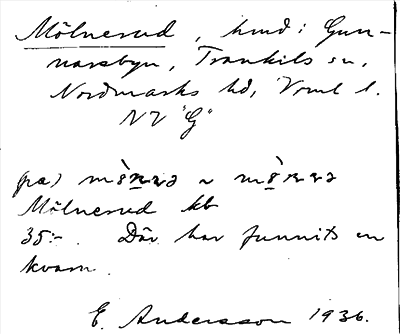 Mölnerud, hmd i Gun-
narsbyn, Trankils sn,
Nordmarks hd, Vrml l.
NV "G"
på)
Mölnerud kb
35:-. Där har funnits en
kvarn.
E. Andersson 1936.